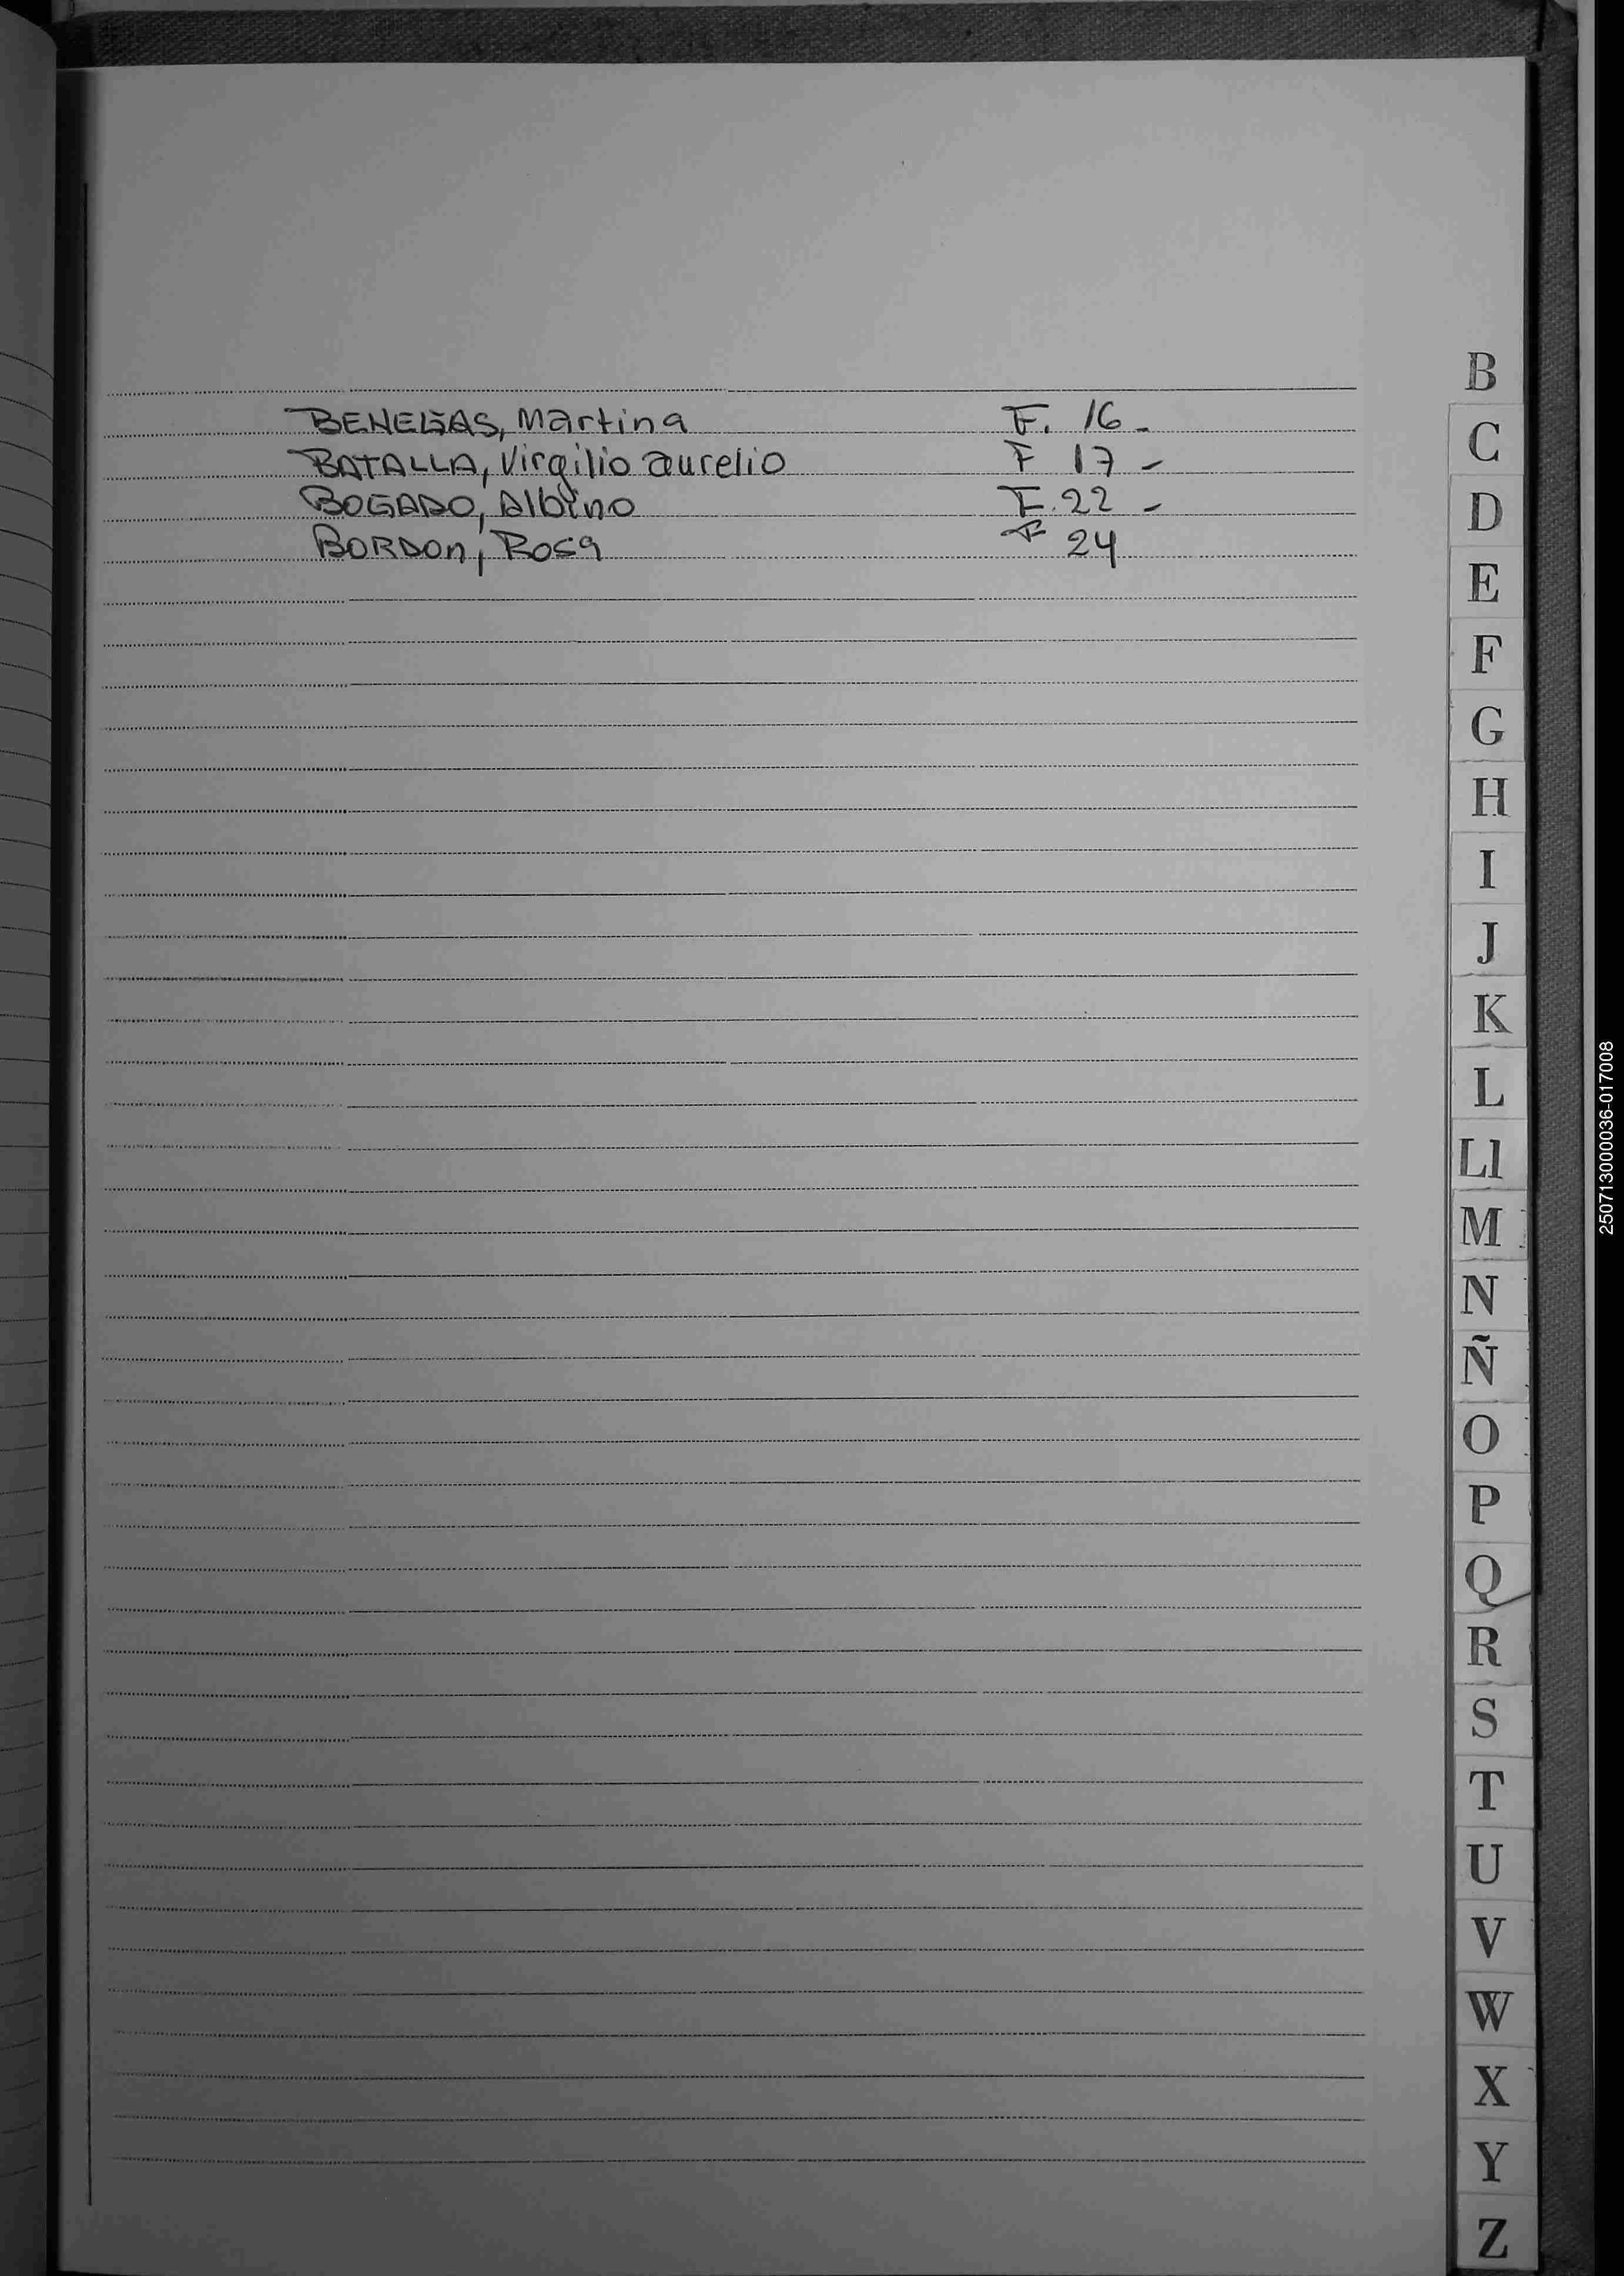 BENEGAS, Martina F. 16 -
BATALLA, Virgilio aurelio F 17 -
BOGADO, Albino F. 22 -
BORDON, Rosa F 24
B
C
D
E
F
G
H
I
J
K
L
Ll
M
N
Ñ
O
P
Q
R
S
T
U
V
W
X
Y
Z
250713000036-017008